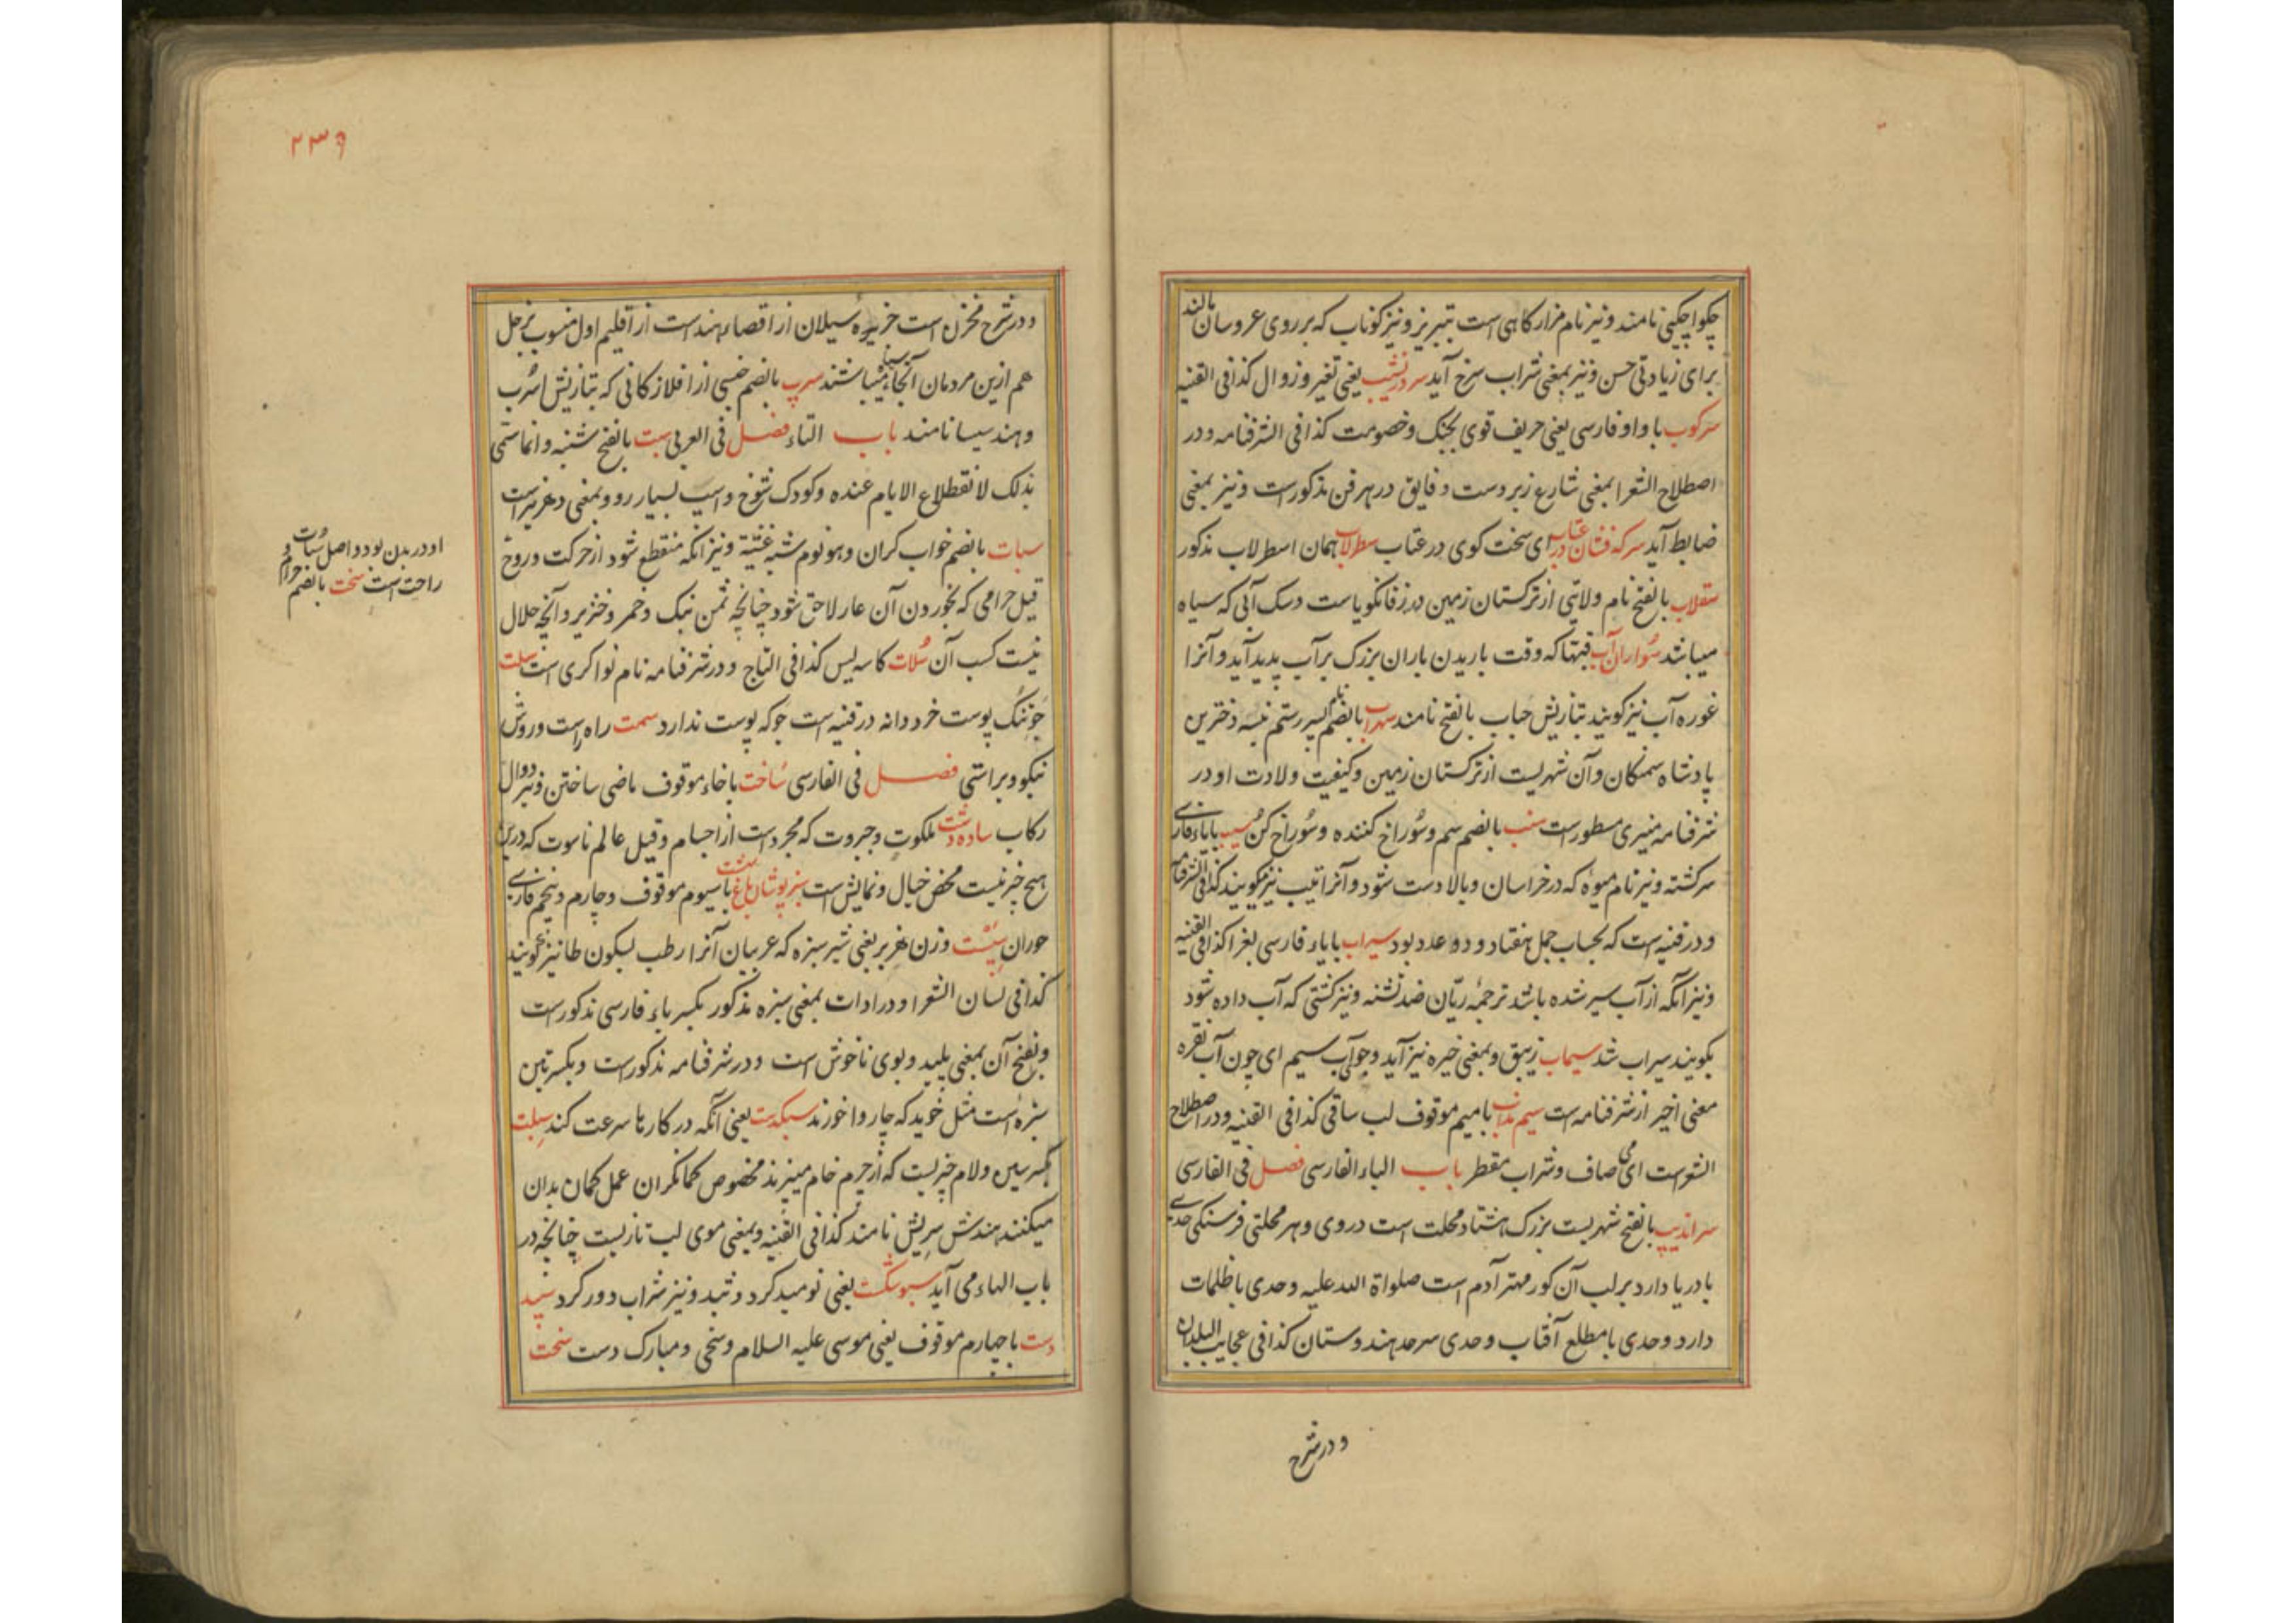 چکوا چکیی نامند و نیز نام مزار کاهی است تبریز و نیز کوناب که بر روی عروسان مالند
برای زیادتی حسن و نیز بمعنی شراب سرخ آید سر در نشیب یعنی تغیر و زوال کذا فی القنیه
سرکوب با واو فارسی یعنی حریف قوی بجنک و خصومت کذا فی الشرفنامه و در
اصطلاح الشعرا بمعنی شارع زبردست و فایق در هر فن مذکور است و نیز بمعنی
ضابط آید سرکه فشان در عتاب ای سخت کوی در عتاب سطرلاب همان اسطرلاب مذکور
سقلاب بالفتح نام ولایتی از ترکستان زمین در زفانکویاست و سک آبی که سیاه
میباشد سواران آب قبتها که وقت باریدن باران بزرک بر آب پدید آید و آنرا
غوره آب نیز کویند بتازیش حباب بالفتح نامند سهراب بالضم نام پسر رستم نبسه دخترین
پادشاه سمنکان و آن شهریست از ترکستان زمین و کیفیت ولادت او در
شرفنامه منیری مسطور است سنب بالضم سم و سوراخ کننده و سوراخ کن سیب بایاء فارسی
سرکشته و نیز نام میوه که در خراسان و بالادست شود و آنرا تیب نیز کویند کذا فی الشرفنامه
و در قنیه است که بحساب جمل هفتاد و دو عدد بود سیراب بایاء فارسی بغرا کذا فی القنیه
و نیز آنکه از آب سیر شده باشد ترجمهٔ ریّان ضد تشنه و نیز کشتی که آب داده شود
بکویند سیراب شد سیماب زیبق و بمعنی خیره نیز آید و جو آب سیم ای چون آب نقره
معنی اخیر از شرفنامه است سیم مذاب بامیم موقوف لب ساقی کذا فی القنیه و در اصطلاح
الشعراست ای می صاف و شراب مقطر باب الباء الفارسی فصل فی الفارسی
سراندیب بالفتح شهریست بزرک هشتاد محلت است در وی و هر محلتی فرسنکی حدی
با دریا دارد بر لب آن کور مهتر آدم است صلواة الله علیه و حدی با ظلمات
دارد و حدی با مطلع آفتاب و حدی سرحد هندوستان کذا فی عجایب البلدان
و در شرح
۲۳۹
و در شرح مخزن است جزیره سیلان از اقصاء هند است از اقلیم اول منسوب بزحل
هم ازین مردمان آنجا سیاه میباشند سرپ بالضم جنسی از افلاز کانی که بتازیش اسرب
و هند سیسا نامند باب التاء فصل فی العربی سبت بالفتح شنبه و انما سمّی
بذلک لانقطاع الایام عنده و کودک شوخ و اسپ بسیار رو و بمعنی دهر نیز است
سبات بالضم خواب کران و هو نوم شبه غشیة و نیز آنکه منقطع شود از حرکت و روح
او در بدن بود و اصل سبات و
راحت است سحت بالضم حرام و
قیل حرامی که بخوردن آن عار لاحق شود چنانچه ثمن سک و خمر و خنزیر و آنچه حلال
نیست کسب آن سلات کاسه لیس کذا فی التاج و در شرفنامه نام نوا کری است سلت
جو تنک پوست خرد دانه در قنیه است جو که پوست ندارد سمت راه راست و روش
نیکو و براستی فصل فی الفارسی ساخت باخاء موقوف ماضی ساختن و نیز دوال
رکاب ساده دشت ملکوت و جبروت که مجرد است از اجسام و قیل عالم ناسوت که درین
هیچ چیز نیست محض خیال و نمایش است سبز پوشان باغ بهشت باسیوم موقوف و چارم و پنجم فارسی
حوران سپست وزن هزبر یعنی شبر سبزه که عربیان آنرا رطب بسکون طا نیز کویند
کذا فی لسان الشعرا و در ادات بمعنی سبزه مذکور بکسر باء فارسی مذکور است
و بفتح آن بمعنی پلید و بوی ناخوش است و در شرفنامه مذکور است و بکسرتین
سبزه است مثل خوید که چاروا خورند سبکدست یعنی آنکه در کارها سرعت کند سبلت
بکسر سین و لام چیزیست که از چرم خام میپزند مخصوص کمانکران عمل کمان بدان
میکنند هندش سریش نامند کذا فی القنیه و بمعنی موی لب تازیست چنانچه در
باب الهاء می آید سبو شکست یعنی نومید کرد و تبد و نیز شراب دور کرد سپید
دست باچهارم موقوف یعنی موسی علیه السلام و سخی و مبارک دست سخت